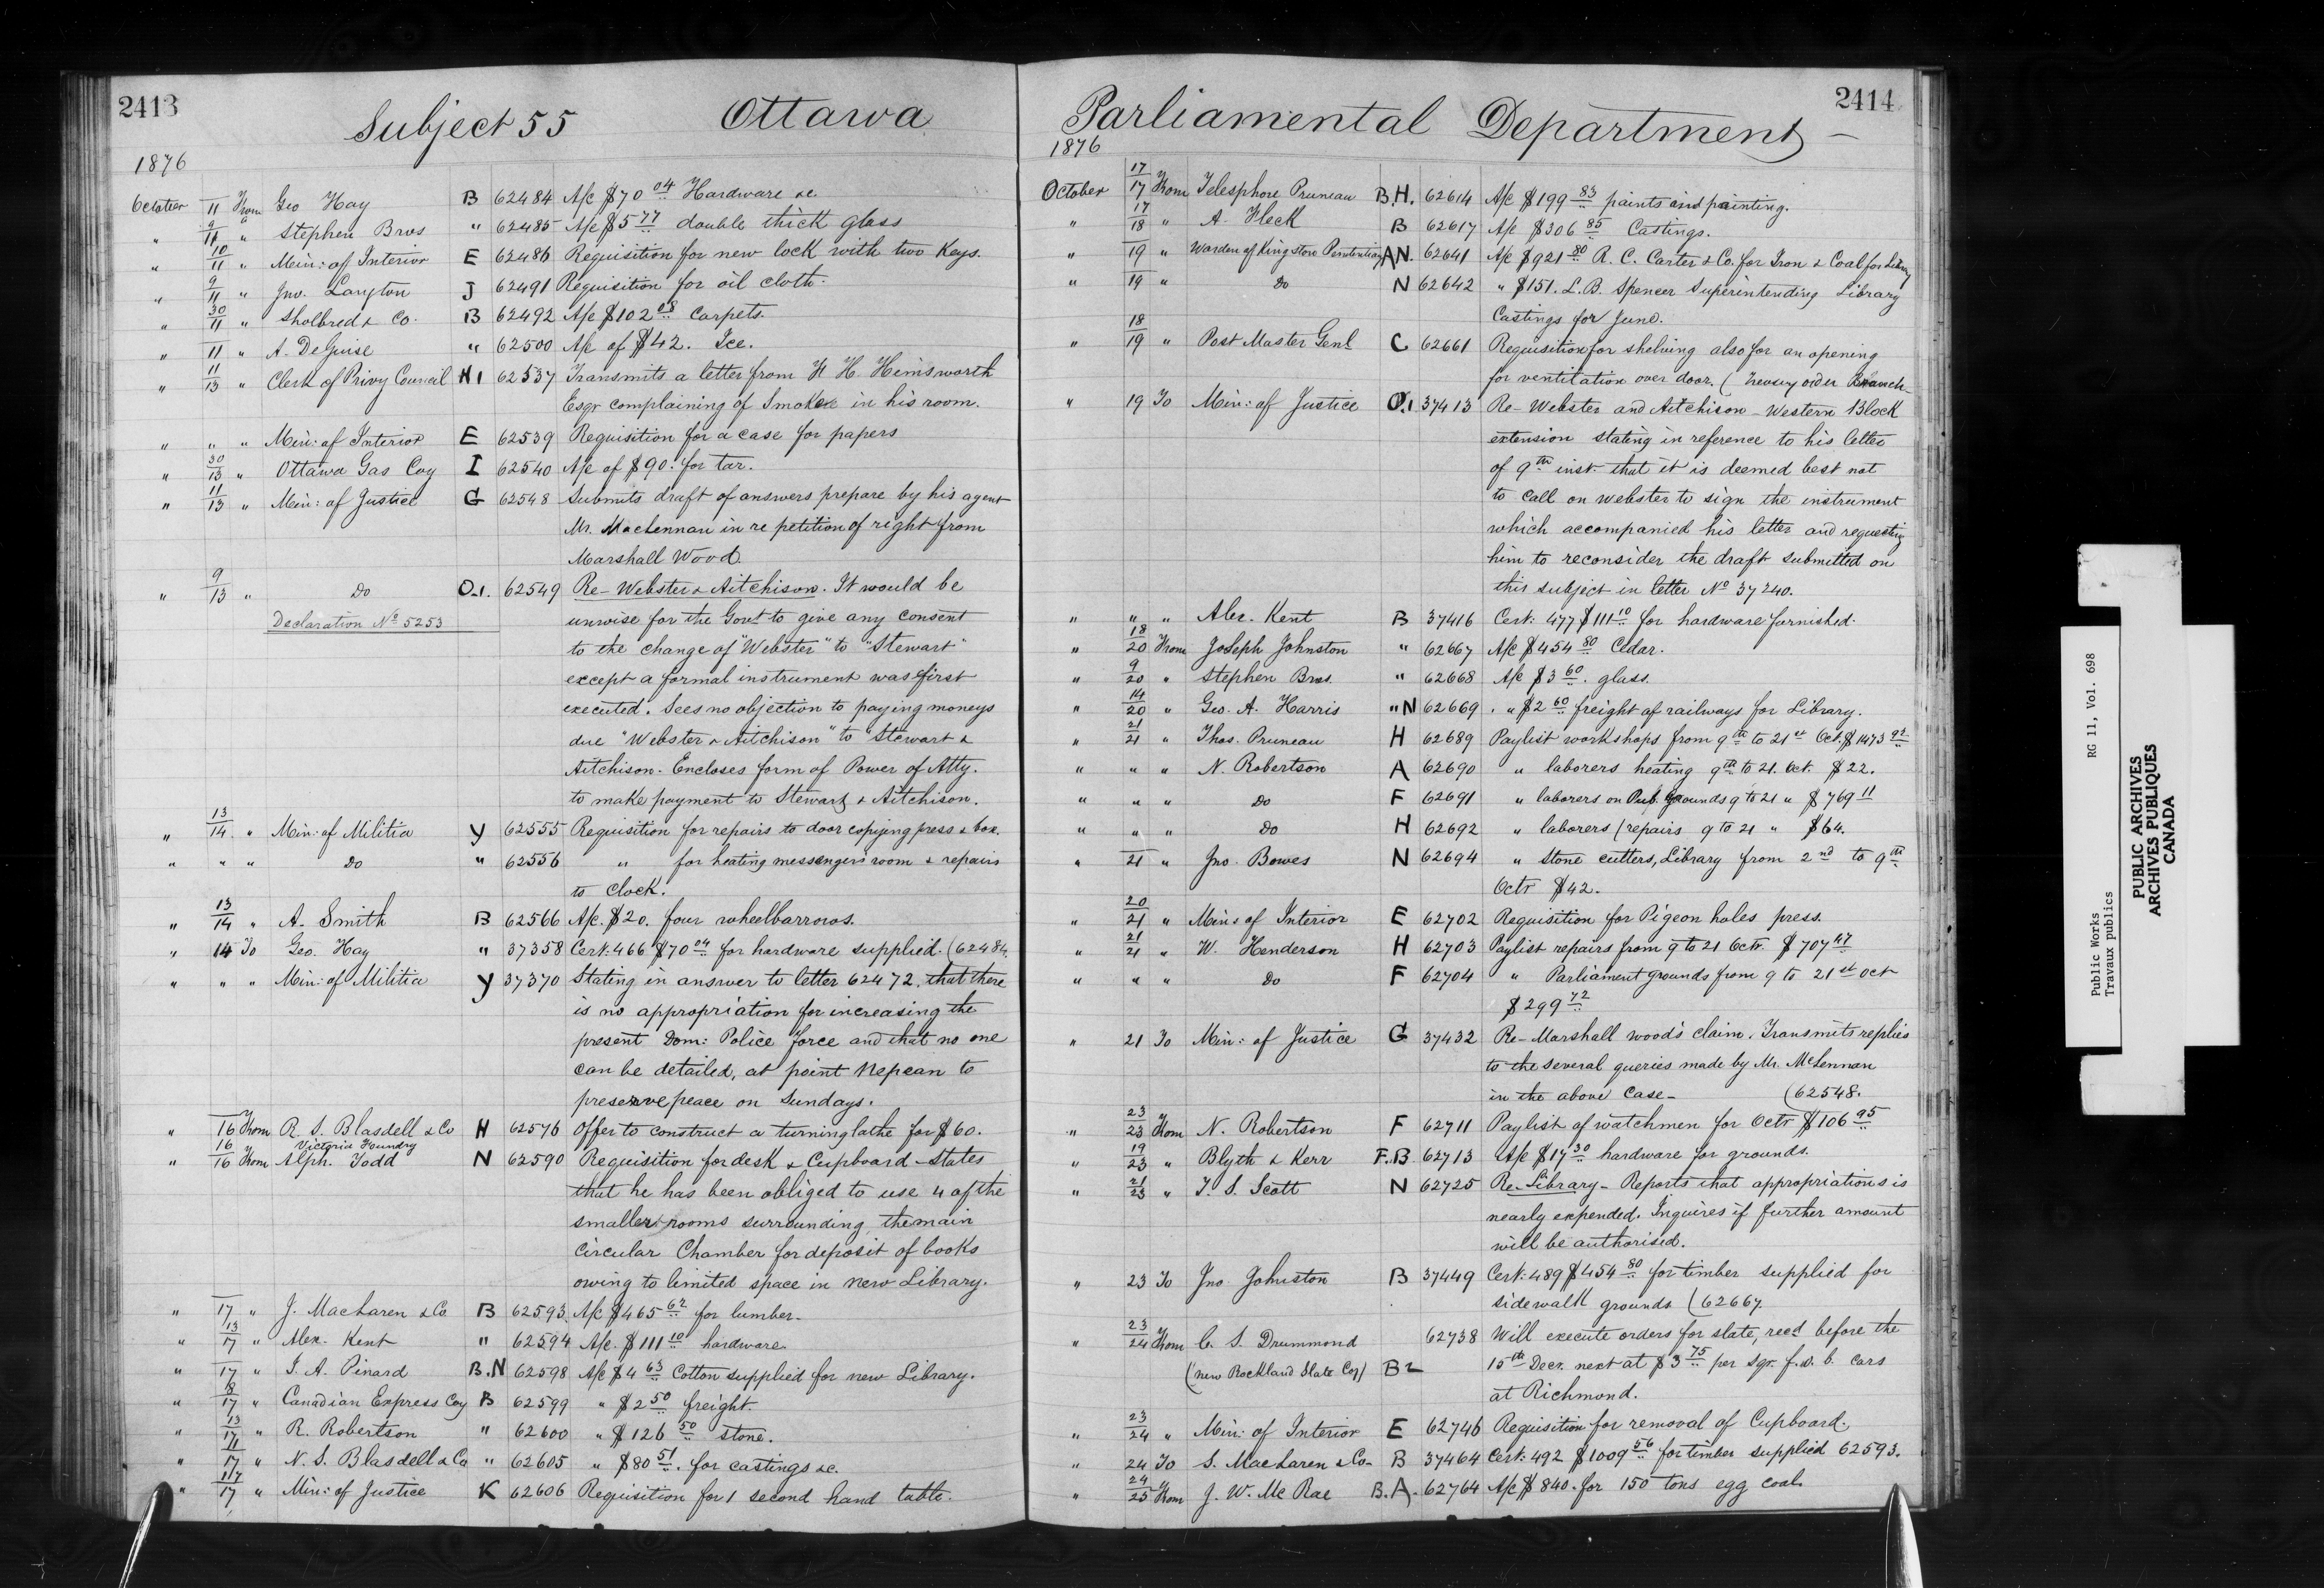 2413
Subject 55 Ottawa
1876
October 11 From Geo Hay B 62484 A/c $70 04 Hardware &c
" 9/11 " Stephen Bros " 62485 A/c $5 77 double thick glass
" 10/11 " Min: of Interior E 62486 Requisition for new lock with two Keys.
" 9/11 " Jno. Langton J 62491 Requisition for oil cloth.
" 30/11 " Sholbred & Co. B 62492 A/c $102 08 Carpets.
" 11 " A. DeGuise " 62500 A/c of $42. Ice.
" 11/13 " Clerk of Privy Council H1 62537 Transmits a letter from H H Himsworth
Esqr complaining of Smoke in his room.
" " " Min: of Interior E 62539 Requisition for a case for papers
" 30/13 " Ottawa Gas Coy I 62540 A/c of $90. for tar.
" 11/13 " Min: of Justice G 62548 Submits draft of answers prepare by his agent
Mr. MacLennan in re petition of right from
Marshall Wood.
" 9/13 " Do O.1. 62549 Re- Webster & Aitchison. It would be
Declaration No 5253 unwise for the Govt to give any consent
to the change of "Webster" to "Stewart"
except a formal instrument was first
executed. Sees no objection to paying moneys
due "Webster & Aitchison" to "Stewart &
Aitchison. Encloses form of Power of Atty.
to make payment to Stewart & Aitchison.
" 13/14 " Min: of Militia Y 62555 Requisition for repairs to door copying press & box.
" " " Do " 62556 " for heating messengers room & repairs
to clock.
" 13/14 " A. Smith B 62566 A/c. $20. four wheelbarrows.
" 14 To Geo. Hay " 37358 Cert: 466 $70 04 for hardware supplied. (62484.
" " " Min: of Militia Y 37370 Stating in answer to letter 62472, that there
is no appropriation for increasing the
present Dom: Police Force and that no one
can be detailed, at point Nepean to
preserve peace on Sundays.
" 16 From R. S. Blasdell & Co H 62576 Offer to construct a turning lathe for $60.
Victoria Foundry
" 16/16 From Alph. Todd N 62590 Requisition for desk & Cupboard - States
that he has been obliged to use 4 of the
smaller rooms surrounding the main
Circular Chamber for deposit of books
owing to limited space in new Library.
" 17 " J. MacLaren & Co B 62593 A/c $465 62 for lumber.
" 13/17 " Alex. Kent " 62594 A/c. $111 10 hardware.
" 17 " J. A. Pinard B.N 62598 A/c $4 63 Cotton supplied for new Library.
" 8/17 " Canadian Express Coy B 62599 " $2 50 freight
" 13/17 " R. Robertson " 62600 " $126 50 stone.
" 11/17 " N. S. Blasdell & Co " 62605 " $80 51. for castings &c.
" 17/17 " Min: of Justice K 62606 Requisition for 1 second hand table.
2414
Parliamental Department
1876
October 17/17 From Telesphore Pruneau B.H. 62614 A/c $199 83 paints and painting.
" 17/18 " A. Fleck B 62617 A/c $306 85 Castings.
" 19 " Warden of Kingston Penitentiary A.N. 62641 A/c $921 80 R. C. Carter & Co. for Iron & Coal for Library
" 19 " Do N 62642 " $151. L. B. Spencer Superintending Library
Castings for June.
" 18/19 " Post Master Genl C 62661 Requisition for shelving also for an opening
for ventilation over door. (Money order Branch
" 19 To Min: of Justice O.1 37413 Re- Webster and Aitchison - Western Block
extension stating in reference to his letter
of 9th inst. that it is deemed best not
to call on Webster to sign the instrument
which accompanied his letter and requesting
him to reconsider the draft submitted on
this subject in letter No 37240.
" " " Alex. Kent B 37416 Cert: 477 $111 10 for hardware furnished.
" 18/20 From Joseph Johnston " 62667 A/c $454 80 Cedar.
" 9/20 " Stephen Bros. " 62668 A/c $3 60. glass.
" 14/20 " Geo. A. Harris " N 62669 " $2 60 freight of railways for Library.
" 21/21 " Thos. Pruneau H 62689 Paylist workshops from 9th to 21st Oct. $1473 92
" " " N. Robertson A 62690 " laborers heating 9th to 21. Oct. $22.
" " " Do F 62691 " laborers on Pub. Grounds 9 to 21 " $769 11
" " " Do H 62692 " laborers (repairs 9 to 21 " $64.
" 21 " Jno. Bowes N 62694 " Stone cutters, Library from 2nd to 9th
Octr $42.
" 20/21 " Min: of Interior E 62702 Requisition for Pigeon holes press.
" 21/21 " W. Henderson H 62703 Paylist repairs from 9 to 21 Octr. $707 47
" " " Do F 62704 " Parliament grounds from 9 to 21st Oct
$299 72
" 21 To Min: of Justice G 37432 Re- Marshall Wood's claim. Transmits replies
to the several queries made by Mr. McLennan
in the above Case- (62548.
" 23/23 From N. Robertson F 62711 Paylist of watchmen for Octr $106 95
" 19/23 " Blyth & Kerr F.B. 62713 A/c $17 30 hardware for grounds.
" 21/23 " T. S. Scott N 62725 Re-Library- Reports that appropriations is
nearly expended. Inquires if further amount
will be authorised.
" 23 To Jno Johnston B 37449 Cert: 489 $454 80 for timber supplied for
sidewalk grounds (62667.
" 23/24 From C. S. Drummond 62738 Will execute orders for slate, recd before the
(new Rockland Slate Coy) B2 15th Decr. next at $3 75 per sqr. f.o.b. cars
at Richmond.
" 23/24 " Min: of Interior E 62746 Requisition for removal of Cupboard.
" 24 To S. MacLaren & Co- B 37464 Cert: 492 $1009 56 for timber supplied 62593.
" 24/25 From J. W. McRae B.A. 62764 A/c $840. for 150 tons egg coal.
Public Works RG 11, Vol. 698
Travaux publics
PUBLIC ARCHIVES
ARCHIVES PUBLIQUES
CANADA